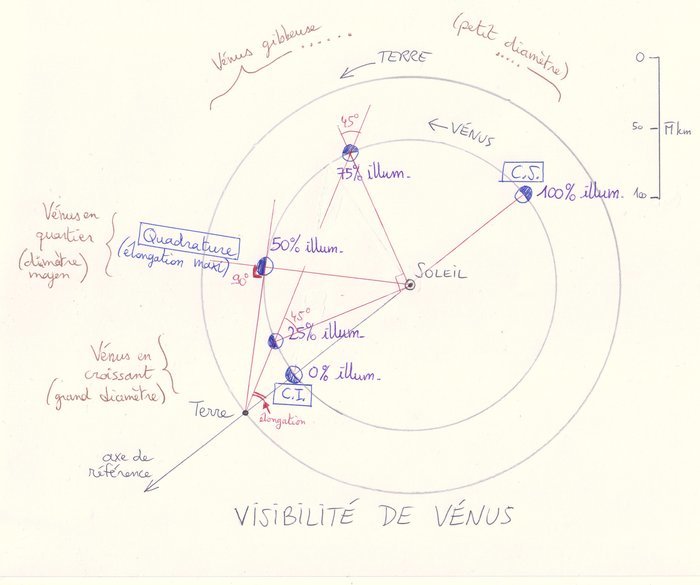 Vénus gibbeuse
(petit diamètre)
TERRE
VÉNUS
0
50
M km
100
45°
75% illum.
C.S.
100% illum.
Vénus en
quartier
(diamètre
moyen)
Quadrature
(élongation maxi)
50% illum.
90°
SOLEIL
45°
25% illum.
Vénus en
croissant
(grand diamètre)
0% illum.
C.I.
Terre
élongation
axe de
référence
VISIBILITÉ DE VÉNUS